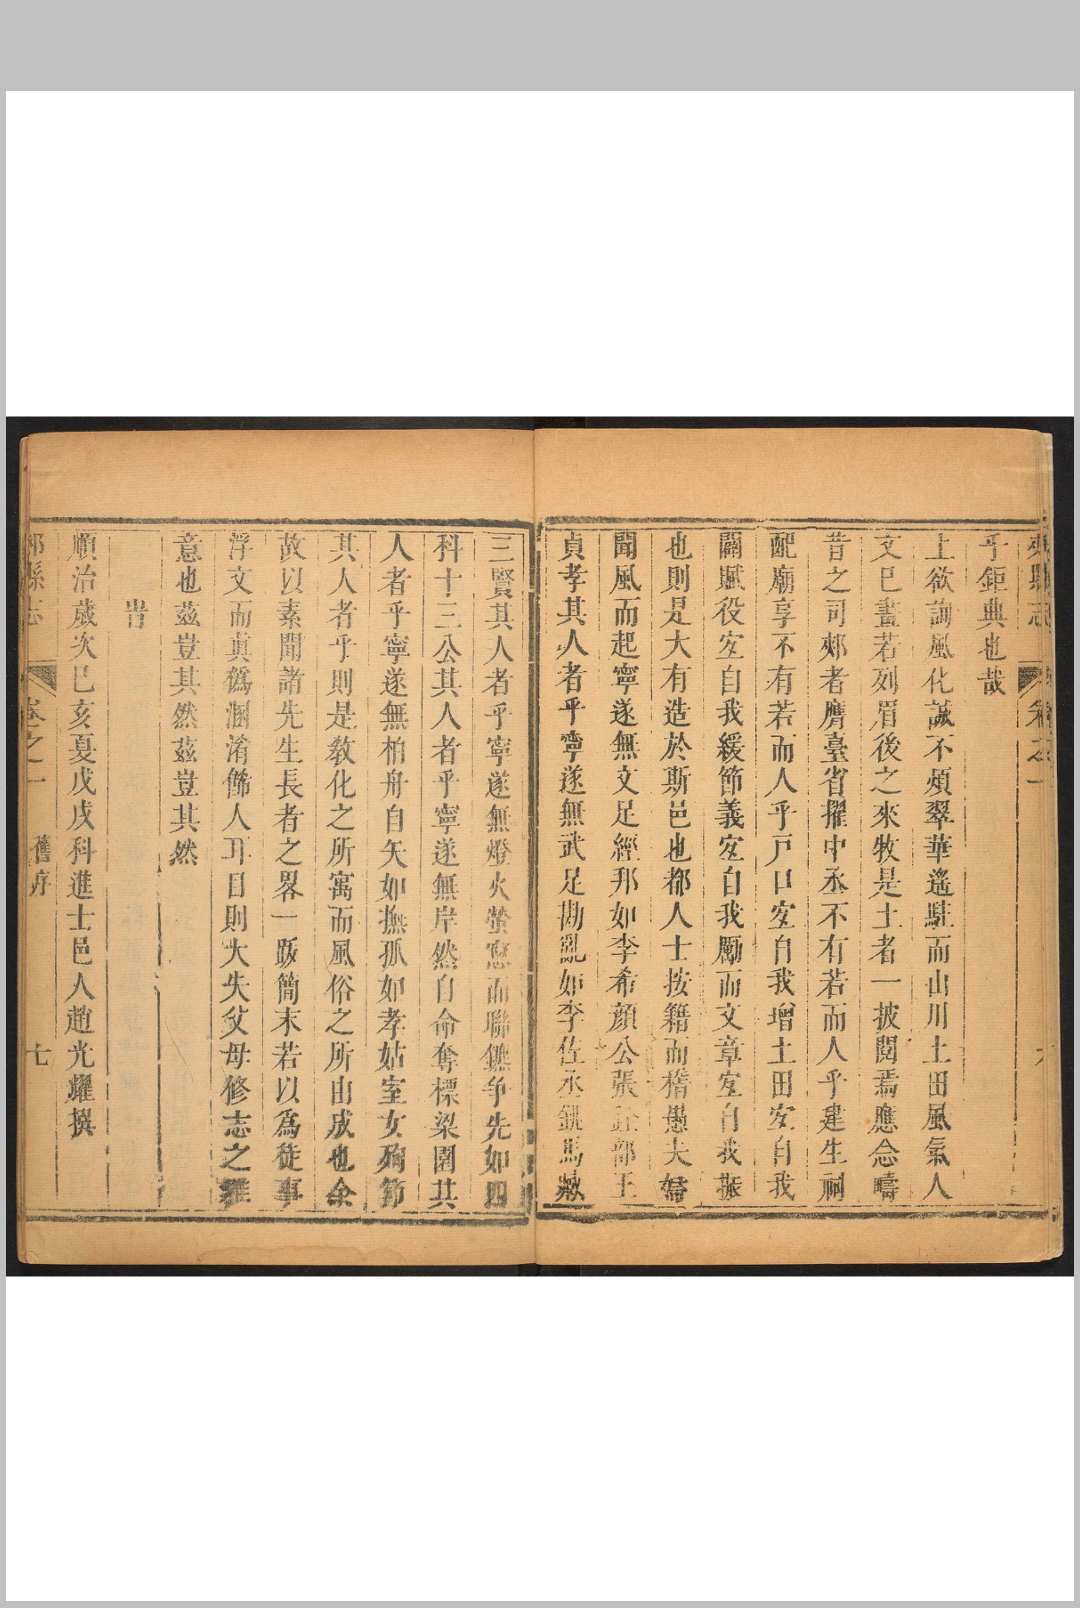 乎鉅典也哉
上欲詢風化誠不煩翠華遙駐而山川土田風氣人
文已晝若列眉後之來牧是土者一披閱焉應念疇
昔之司郟者膺臺省擢中丞不有若而人乎建生祠
配廟享不有若而人乎戸口宐自我增土田宐自我
闢賦役宐自我緩節義宐自我勵而文章宐自我振
也則是大有造於斯邑也都人士按籍而稽愚夫婦
聞風而起寧遂無文足經邦如李希顏公張部王
貞孝其人者乎寧遂無武足勘亂如李佐丞馬
三賢其人者乎寧遂無燈火螢窓而聯鑣争先如四
科十三公其人者乎寧遂無岸然自命奪標梁園其
人者乎寧遂無柏舟自矢如撫孤如孝姑室女殉節
其人者乎則是敎化之所寓而風俗之所由成也余
故以素聞諸先生長者之畧一䟦簡末若以爲徒事
浮文而眞僞溷淆餙人耳目則大失父母修志之雅
意也茲豈其然茲豈其然
旹
順治歲次己亥夏戊戌科進士邑人趙光耀撰
郟縣志 卷之一 舊序 七